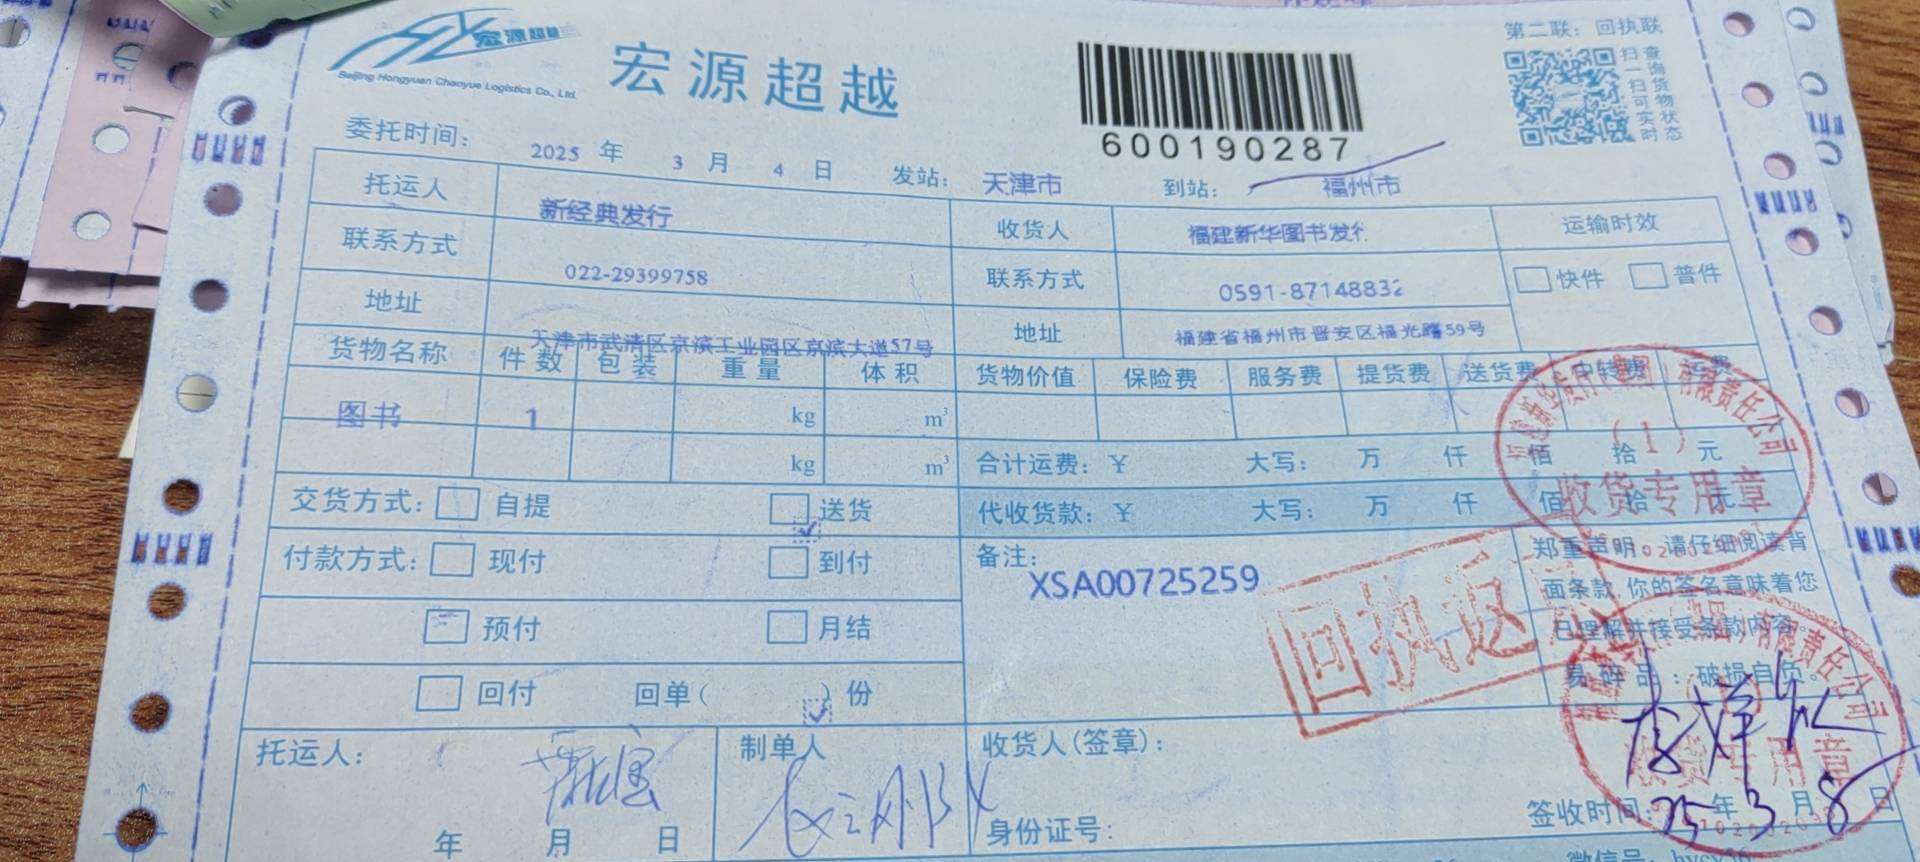 宏源超越
Beijing Hongyuan Chaoyue Logistics Co., Ltd.
宏源超越
600190287
第二联：回执联
扫一扫可实时查询货物状态
委托时间： 2025 年 3 月 4 日 发站： 天津市 到站： 福州市
托运人 新经典发行 收货人 福建新华图书发行 运输时效
联系方式 022-29399758 联系方式 0591-87148832 快件 普件
地址 天津市武清区京滨工业园区京滨大道57号 地址 福建省福州市晋安区福光路59号
货物名称 件数 包装 重量 体积 货物价值 保险费 服务费 提货费 送货费 中转费 运费
图书 1 kg m³
kg m³ 合计运费：¥ 大写： 万 仟 佰 拾 元
交货方式： 自提 送货 代收货款：¥ 大写： 万 仟 佰 拾 元
付款方式： 现付 到付 备注：
XSA00725259
预付 月结
回付 回单（ ）份
郑重声明：请仔细阅读背
面条款,你的签名意味着您
已理解并接受条款内容。
易碎品：破损自负。
有限责任公司
(1)
收货专用章
回执返
有限责任公司
收货专用章
托运人： 制单人 收货人(签章)：
年 月 日 身份证号： 签收时间：25年3月8日
微信号：hycy56